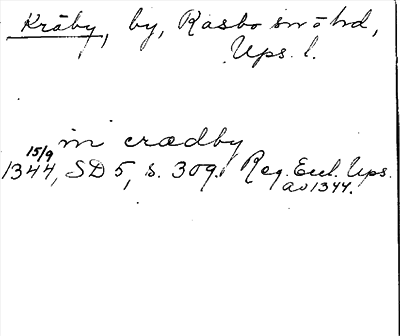 Kråby, by, Rasbo sn o hd,
Ups. l.
in crædby
15/9
1344, SD 5, s. 309. Reg. Eccl. Ups.
av 1344.